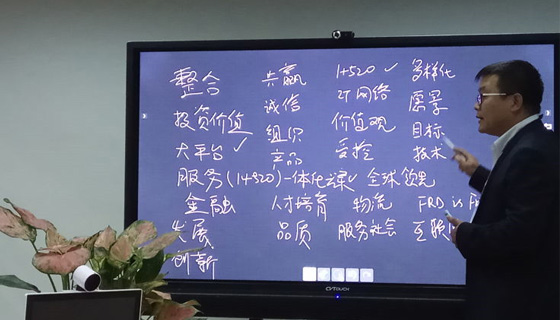 整合 共赢 1+520 ✓ 多样化
诚信 IT网络 愿景
投资价值 组织 价值观 目标
大平台 ✓ 产品 受控 技术
服务(1+520)一体化 ✓ 全球
金融 人才培育 物流 FRD is
发展 品质 服务社会 互联
创新
TOUCH